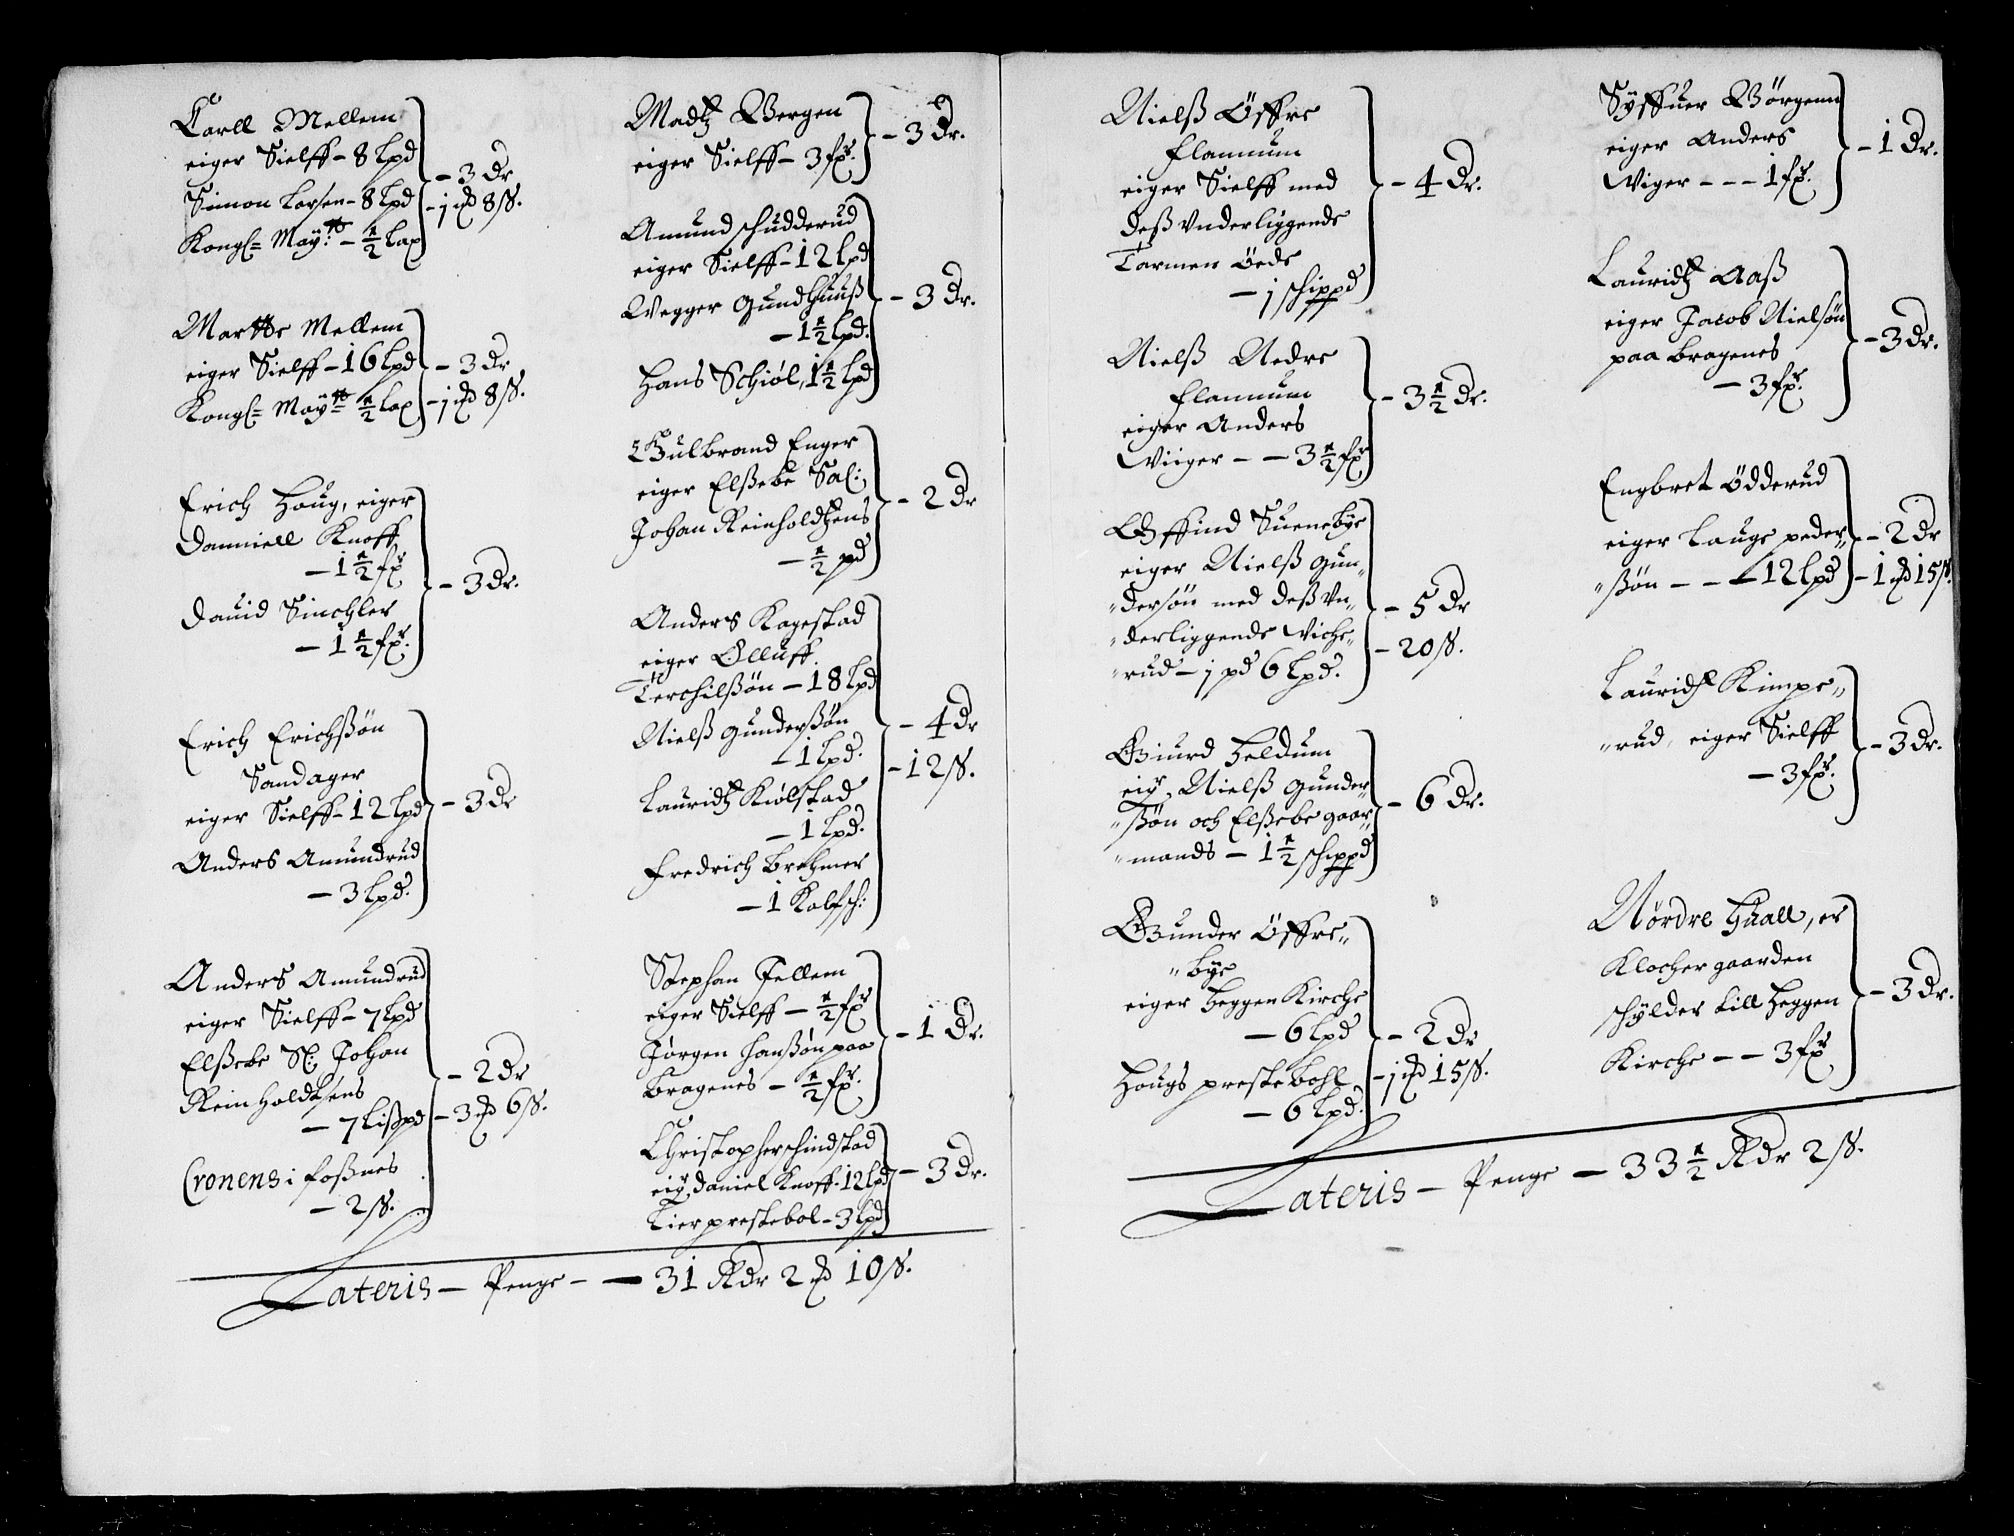 Carll Mellem
eiger Sielff - 8 lpd
Simon Larsen - 8 lpd
Kongl= May:tt - ½ lax
- 3 dr
- j 8 ß.
Martte Mellem
eiger Sielff - 16 lpd
Kongl= May=tt ½ lax
- 3 dr
- j 8 ß.
Erich Houg, eiger
Danniell Knoff
- 1½ fp
Dauid Sinchler
- 1½ fp.
- 3 dr.
Erich Erichßøn
Sandager
eiger Sielff - 12 lpd
Anders Amundrud
- 3 lpd.
- 3 dr
Anders Amundrud
eiger Sielff - 7 lpd
Elßebe Sl: Johan
Reinholdtsens
- 7 lißpd
Cronens i foßnes
- 2 ß.
- 2 dr
- 3 6 ß.
Madtz Bergen
eiger Sielff - 3 fp.
- 3 dr.
Amund schudderud
eiger Sielff - 12 lpd
Wegger Gundhuuß
- 1½ lpd.
Hans Schiøl, 1½ lpd
- 3 dr.
Gulbrand Enger
eiger Elßebe Sal:
Johan Reinholdtzens
- ½ pd
- 2 dr
Anders Kagestad
eiger Olluff
Terchilßøn - 18 lpd
Nielß Gunderßøn
- 1 lpd.
Lauridtz Kiølstad
- 1 lpd.
Fredrich Brehmer
- 1 Kalfsch:
- 4 dr
- 12 ß.
Stephan Jellem
eiger Sielff - ½ fp
Jørgen Hanßøn paa
Bragenes - ½ fp.
- 1 dr.
Christopher schindstad
eig. Daniel Knoff - 12 lpd
Lier prestebol - 3 lpd
- 3 dr.
Lateris - Penge - - 31 Rdr 2 10 ß.
Nielß Öffre
flannum
eiger Sielff med
deß Vnderliggende
Tarmen öede
- j schippd
- 4 dr.
Nielß Nedre
flannum
eiger Anders
Wiiger - - 3½ fp
- 3½ dr.
Effind Suenebye
eiger Nielß Gun„
„dersøn med deß Vn„
„derliggende Wiche„
„rud - j pd 6 lpd.
- 5 dr
- 20 ß.
Giurd Heldum
eig. Nielß Gunder„
„ßøn och Elßebe gaar„
„mands - 1½ schippd
- 6 dr.
Gunder Öffre„
„bye
eiger Heggen Kirche
- 6 lpd
Hougs prestebohl
- 6 lpd.
- 2 dr
- j 15 ß.
Syffuer Børgenn
eiger Anders
Wiger - - - 1 fp.
- 1 dr.
Lauridtz Aaß
eiger Jacob Nielsøn
paa Bragenes
- 3 fp.
- 3 dr.
Engbret Ödderud
eiger Lauge peder„
„ßøn - - - 12 lpd
- 2 dr
- 1 15 ß.
Lauridtz Kimpe„
„rud, eiger Sielff
- 3 fp.
- 3 dr.
Nørdre Huall, er
Klocher gaarden
schylder till Heggen
Kirche - - 3 fp
- 3 dr.
Lateris - Penge - 33½ Rdr 2 ß.